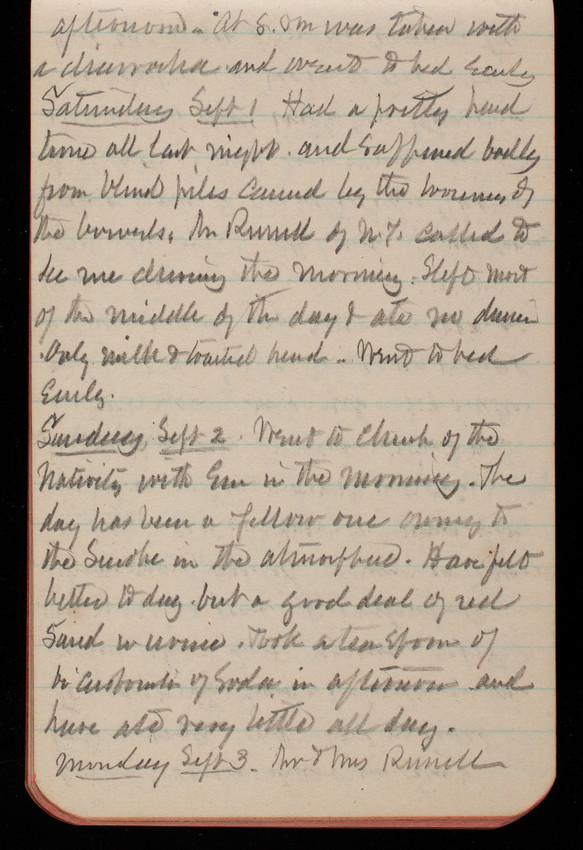 afternoon. At 8. I was taken with
a diarrohea and went to bed Early
Saturday Sept 1 Had a pretty hard
time all last night. and suffered badly
from blind piles caused by the looseness of
the bowels. Mr Russell of N.Y. called to
see me during the morning. Slept most
of the middle of the day & ate no dinner
Only milk & toasted bread.. Went to bed
Early.
Sunday, Sept 2. Went to Church of the
Nativity with Em in the morning. The
day has been a yellow one owing to
the Smoke in the atmosphere. Have felt
better to day but a good deal of red
Sand in urine. Took a tea Spoon of
bi carbonate of Soda in afternoon and
have ate very little all day.
Monday Sept 3. Mr & Mrs Russell